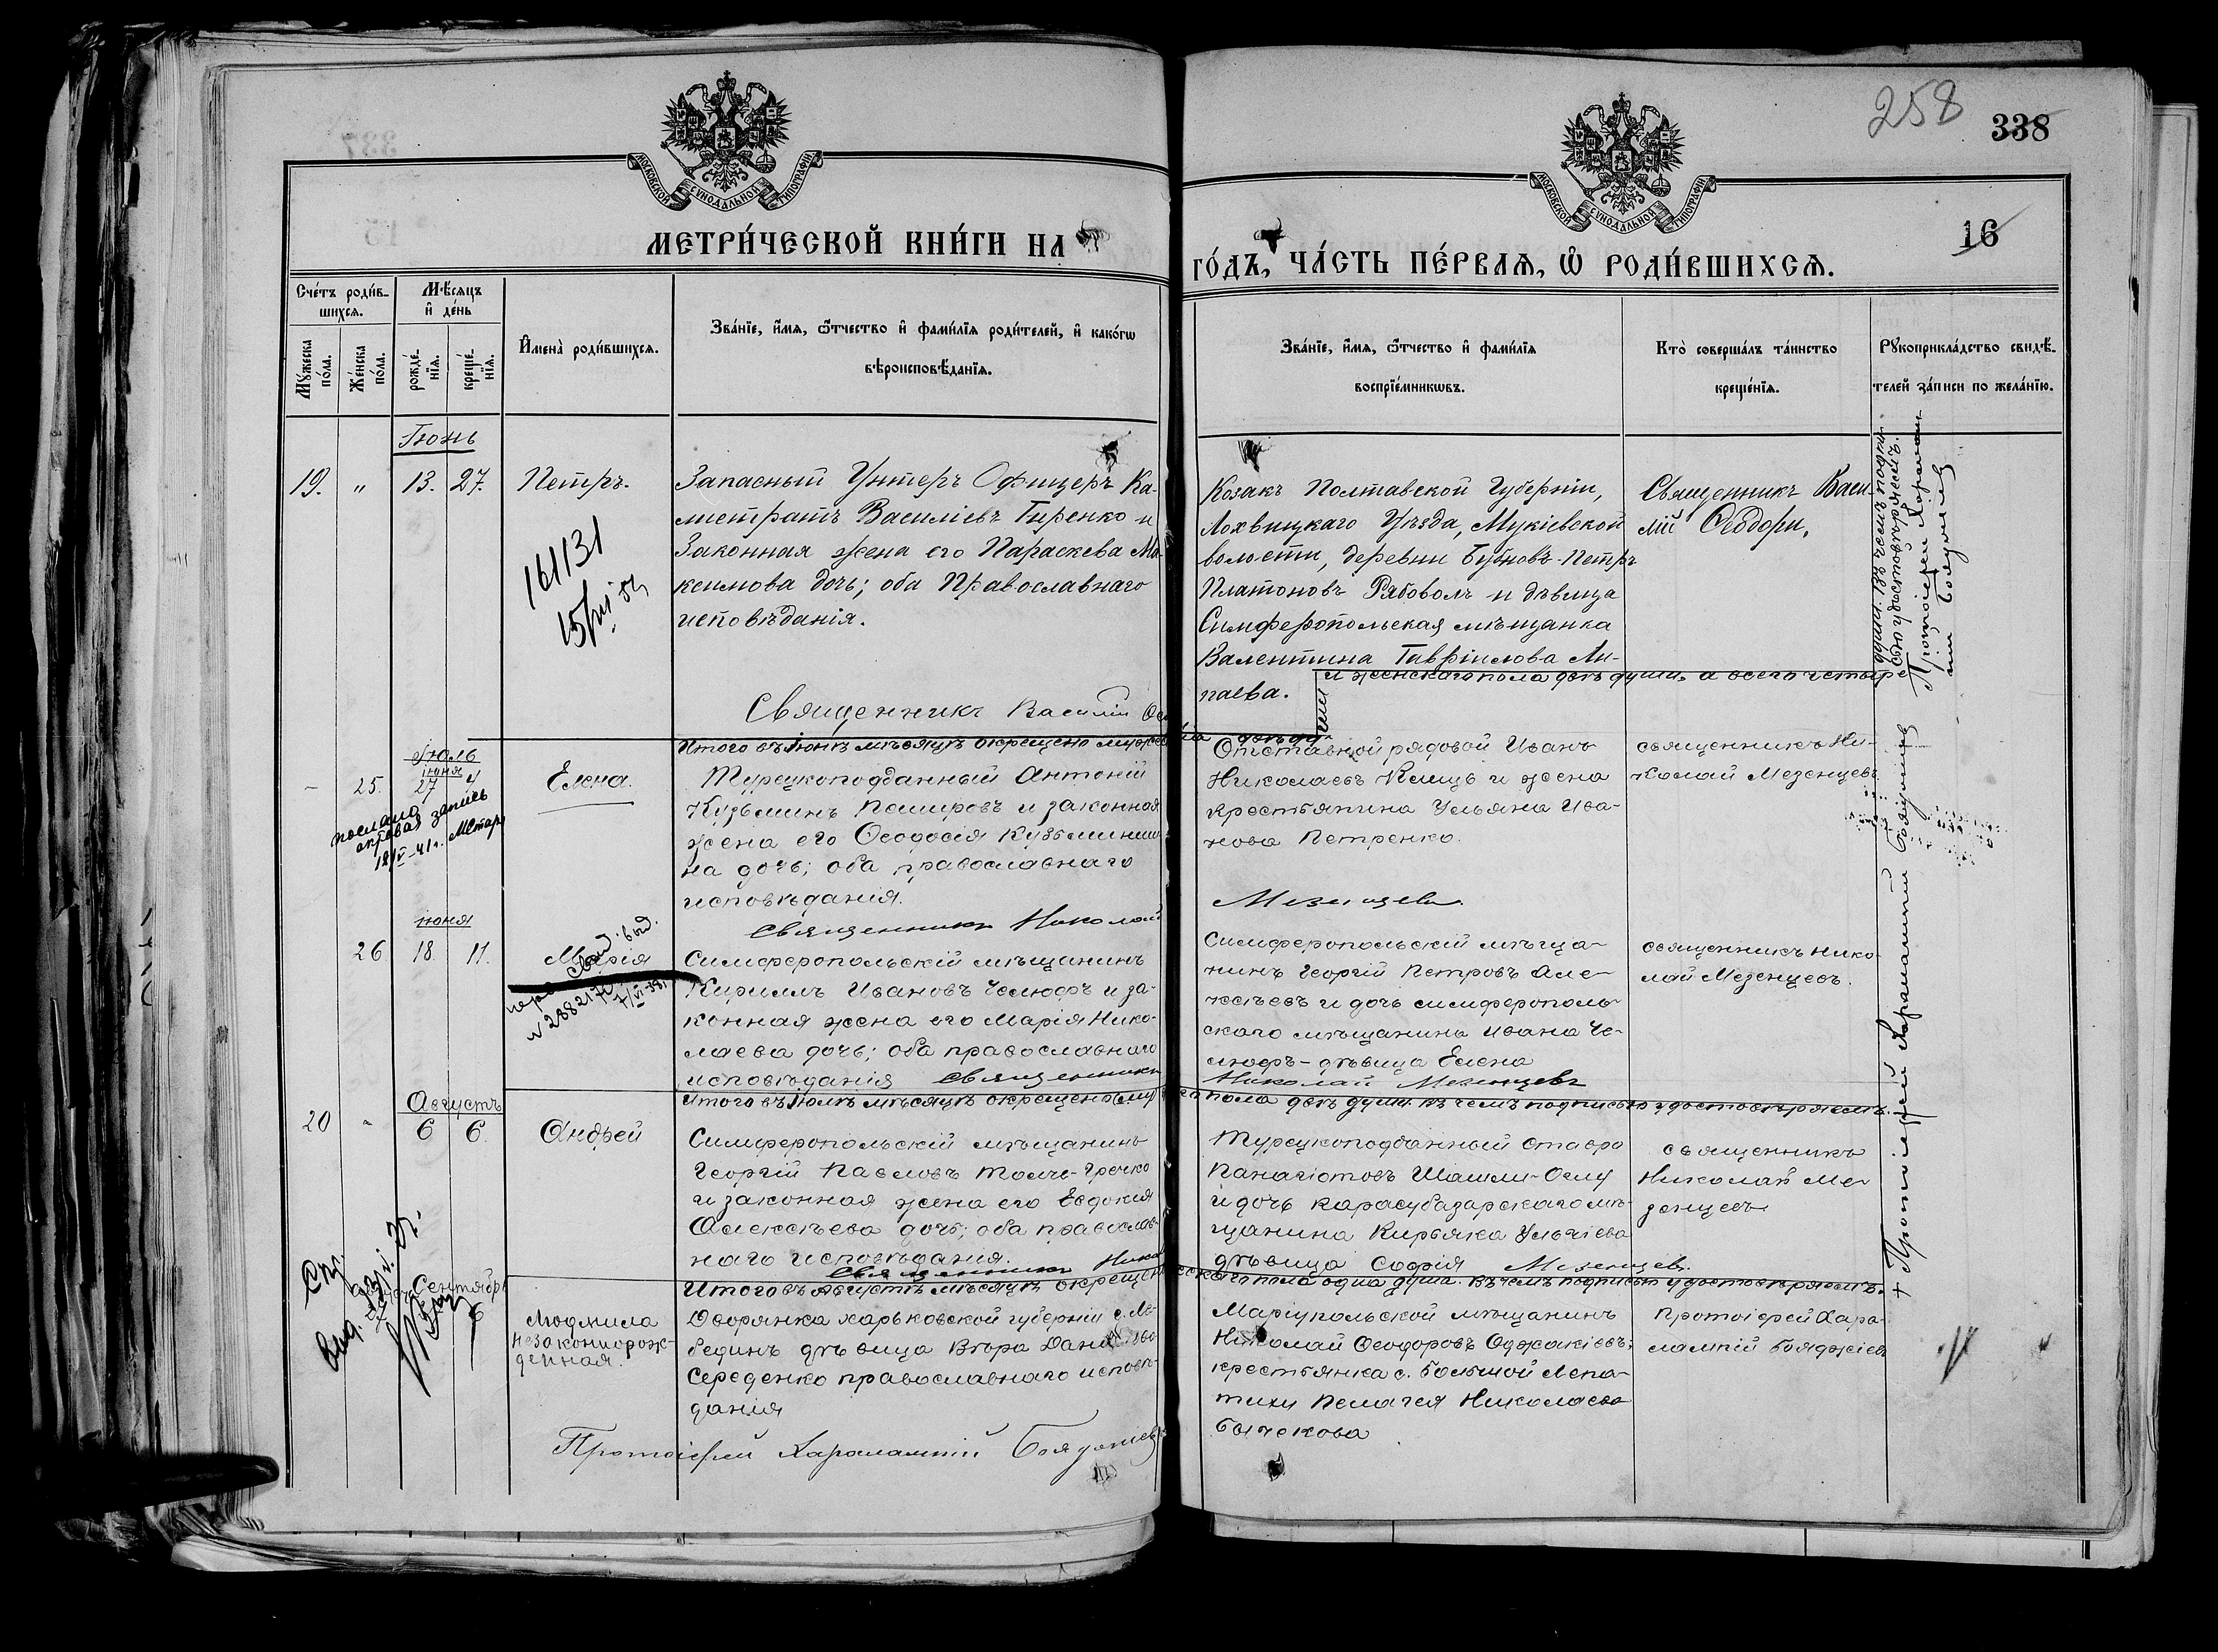 258
338
16
МОСКОВСКОЙ СѴНОДАЛЬНОЙ ТИПОГРАФІИ
МОСКОВСКОЙ СѴНОДАЛЬНОЙ ТИПОГРАФІИ
МЕТРИ́ЧЕСКОЙ КНИ́ГИ НА
ГО́ДЪ, ЧА́СТЬ ПЕ́РВАѦ, Ѽ РОДИ́ВШИХСѦ.
Сче́тъ роди́в-
шихсѧ.
Мѣ́сѧцъ
и҆ де́нь
Мꙋ́жеска по́ла.
Же́нска по́ла.
рожде́-
нїѧ.
креще́-
нїѧ.
И҆мена̀ роди́вшихсѧ.
Зва́нїе, и҆́мѧ, ѻ҆́тчество и҆ фами́лїѧ роди́телей, и҆ како́гѡ
вѣроисповѣ́данїѧ.
Зва́нїе, и҆́мѧ, ѻ҆́тчество и҆ фами́лїѧ
воспрїе́мникѡвъ.
Кто̀ соверша́лъ та́инство
креще́нїѧ.
Рꙋкоприкла́дство свидѣ́-
телей за́писи по жела́нїю.
Іюнь
19. " 13. 27. Петръ.
161131
Запасный Унтеръ Офицеръ Ка-
листратъ Василіевъ Гиренко и
Законная жена его Параскева Ма-
ксимова дочь; оба Православнаго
исповѣданія.
Священникъ Василій
Козакъ Полтавской Губерніи,
Лохвицкаго Уѣзда,
волости, деревни Бубновъ-Петръ
Платоновъ Рябоволъ и дѣвица
Симферопольская мѣщанка
Валентина Гавріилова Ли-
паева.
Священникъ Васи-
лій Ѳеодори.
Итого въ Іюнѣ мѣсяцѣ окрещено
и женскаго пола двѣ души, а всего четыре
души. Въ чемъ подпи-
сью удостовѣряемъ.
Протоіерей
Іюль
іюня
- 25. 27 4 Елена.
послана
актовая запись
Турецкоподданный Антоній
Кузьминъ Памировъ и законная
жена его Ѳеодосія Кузьмини-
на дочь; оба православнаго
исповѣданія.
Священникъ Николай
Отставной рядовой Иванъ
Николаевъ Клищъ и жена
крестьянина Ульяна Ива-
нова Петренко.
Мезенцевъ.
священникъ Ни-
колай Мезенцевъ
іюня
26 18. 11. Марія
Симферопольскій мѣщанинъ
Кириллъ Ивановъ Челюфъ и за-
конная жена его Марія Нико-
лаева дочь; оба православнаго
исповѣданія священникъ
Симферопольскій мѣща-
нинъ Георгій Петровъ Але-
ксѣевъ и дочь симферополь-
скаго мѣщанина Ивана Че-
люфъ-дѣвица Елена
Николай Мезенцевъ
священникъ Нико-
лай Мезенцевъ.
Итого въ Іюлѣ мѣсяцѣ окрещено
пола двѣ души. въ чемъ подписью удостовѣряемъ.
Августъ
20 " 6 6. Андрей
Симферопольскій мѣщанинъ
Георгій Павловъ
и законная жена его Евдокія
Алексѣева дочь; оба православ-
наго исповѣданія.
Священникъ
Турецкоподданный Ставро
Панагіотовъ Шашли-Оглу
и дочь карасубазарскаго мѣ-
щанина Кирьяка
дѣвица Софія Мезенцевъ.
священникъ
Николай Ме-
зенцевъ
Итого въ Августѣ мѣсяцѣ окрещено
пола одна душа. въ чемъ подписью удостовѣряемъ.
Сентябрь
6
Людмила
незаконнорож-
денная.
Дворянка харьковской губерніи г. Ле-
бединъ дѣвица Вѣра
Середенко православнаго исповѣ-
данія
Протоіерей Харалампій Бояджіевъ
Маріупольской мѣщанинъ
Николай Ѳеодоровъ Оджакіевъ;
крестьянка с. Большой Лепа-
тихи Пелагея Николаева
Бычкова
Протоіерей Хара-
лампій Бояджіевъ
Протоіерей Харалампій Бояджіевъ